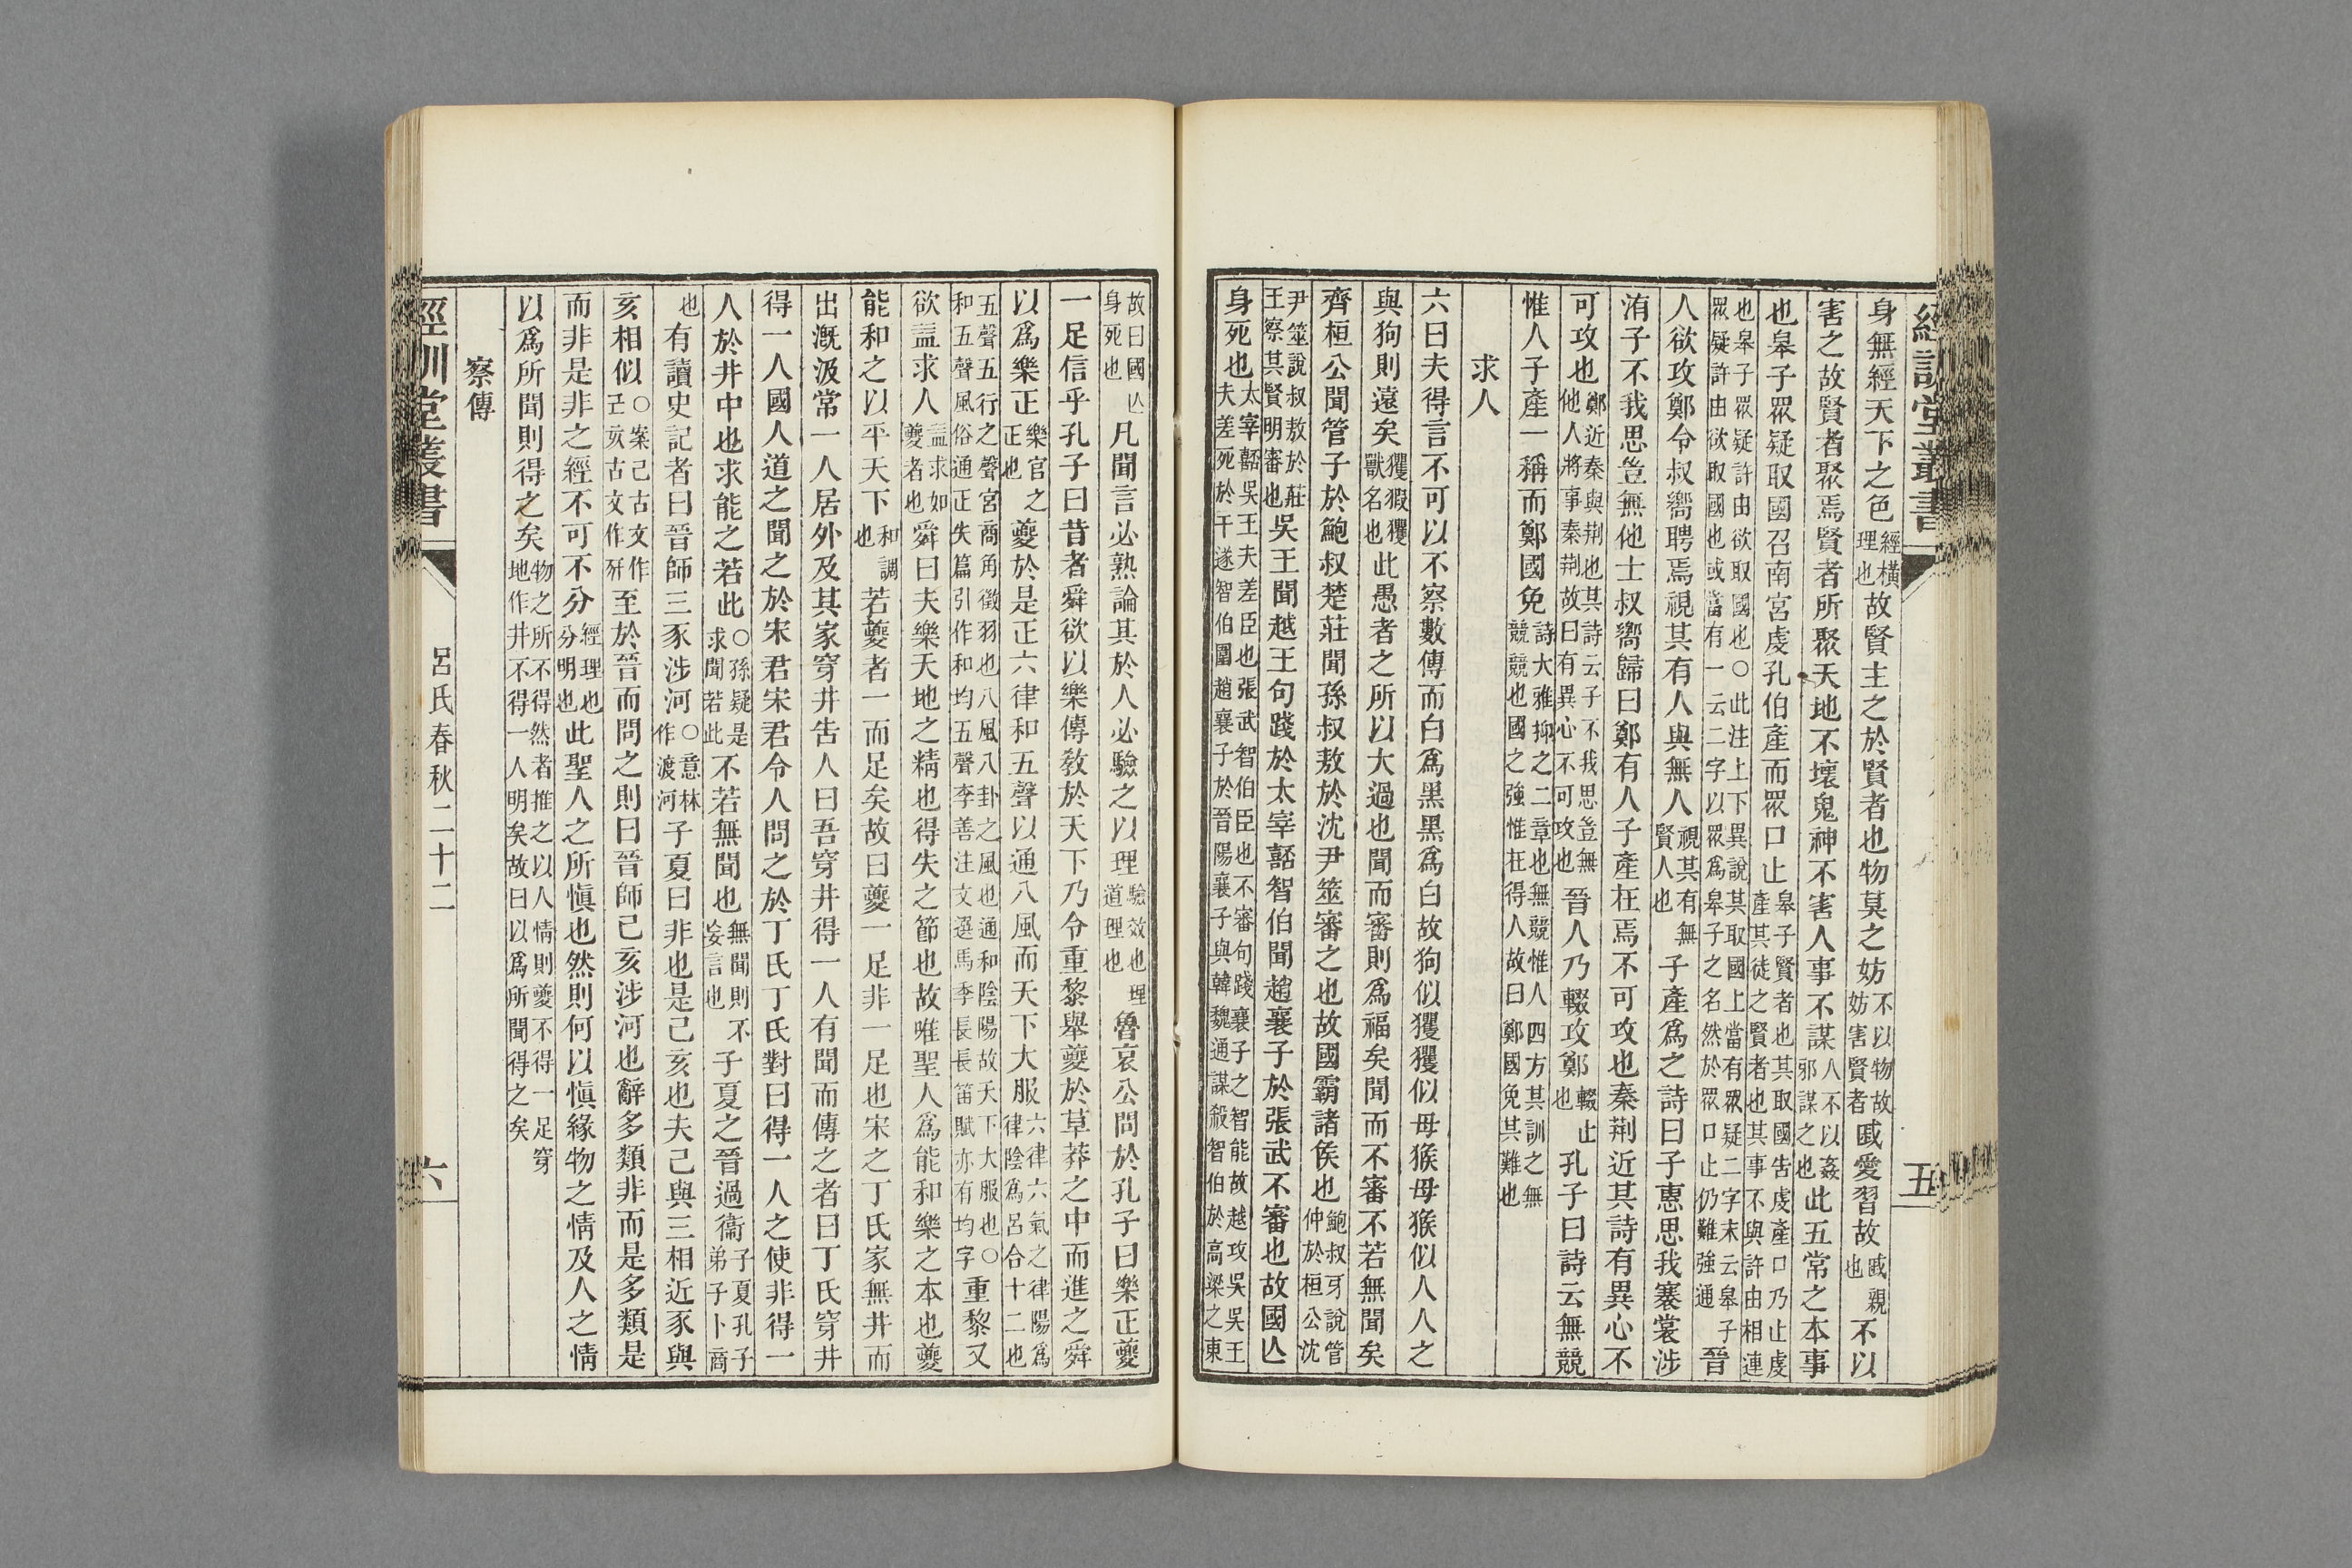 經訓堂叢書
五
身無經天下之色經橫理也故賢主之於賢者也物莫之妨不以物故妨害賢者戚愛習故戚親也不以
害之故賢者聚焉賢者所聚天地不壞鬼神不害人事不謀人不以姦邪謀之也此五常之本事
也皋子眾疑取國召南宮虔孔伯產而眾口止皋子賢者也其取國告虔產口乃止虔產其徒之賢者也其事不與許由相連
也皋子眾疑許由欲取國也○此注上下異說其取國上當有眾疑二字末云皋子眾疑許由欲取國也或當有一云二字以眾為皋子之名然於眾口止仍難強通晉
人欲攻鄭令叔嚮聘焉視其有人與無人視其有無賢人也子產為之詩曰子惠思我褰裳涉
洧子不我思豈無他士叔嚮歸曰鄭有人子產在焉不可攻也秦荆近其詩有異心不
可攻也鄭近秦與荆也其詩云子不我思豈無他人將事秦荆故曰有異心不可攻也晉人乃輟攻鄭輟止也孔子曰詩云無競
惟人子產一稱而鄭國免詩大雅抑之二章也無競惟人四方其訓之無競競也國之強惟在得人故曰鄭國免其難也
求人
六曰夫得言不可以不察數傳而白為黑黑為白故狗似玃玃似母猴母猴似人人之
與狗則遠矣玃猳玃獸名也此愚者之所以大過也聞而審則為福矣聞而不審不若無聞矣
齊桓公聞管子於鮑叔楚莊聞孫叔敖於沈尹筮審之也故國霸諸侯也鮑叔牙說管仲於桓公沈
尹筮說叔敖於莊王察其賢明審也吳王聞越王句踐於太宰嚭智伯聞趙襄子於張武不審也故國亾
身死也太宰嚭吳王夫差臣也張武智伯臣也不審句踐襄子之智能故越攻吳吳王夫差死於干遂智伯圍趙襄子於晉陽襄子與韓魏通謀殺智伯於高梁之東
故曰國亾身死也凡聞言必熟論其於人必驗之以理驗效也理道理也魯哀公問於孔子曰樂正夔
一足信乎孔子曰昔者舜欲以樂傳敎於天下乃令重黎舉夔於草莽之中而進之舜
以為樂正樂官之正也夔於是正六律和五聲以通八風而天下大服六律六氣之律陽為律陰為呂合十二也
五聲五行之聲宮商角徵羽也八風八卦之風也通和陰陽故天下大服也○和五聲風俗通正失篇引作和均五聲李善注文選馬季長長笛賦亦有均字重黎又
欲益求人益求如夔者也舜曰夫樂天地之精也得失之節也故唯聖人為能和樂之本也夔
能和之以平天下和調也若夔者一而足矣故曰夔一足非一足也宋之丁氏家無井而
出溉汲常一人居外及其家穿井告人曰吾穿井得一人有聞而傳之者曰丁氏穿井
得一人國人道之聞之於宋君宋君令人問之於丁氏丁氏對曰得一人之使非得一
人於井中也求能之若此○孫疑是求聞若此不若無聞也無聞則不妄言也子夏之晉過衞子夏孔子弟子卜商
也有讀史記者曰晉師三豕涉河○意林作渡河子夏曰非也是己亥也夫己與三相近豕與
亥相似○案己古文作𢀒亥古文作𢁳至於晉而問之則曰晉師己亥涉河也辭多類非而是多類是
而非是非之經不可不分經理也分明也此聖人之所慎也然則何以慎緣物之情及人之情
以為所聞則得之矣物之所不得然者推之以人情則夔不得一足穿地作井不得一人明矣故曰以為所聞得之矣
察傳
經訓堂叢書
呂氏春秋二十二
六